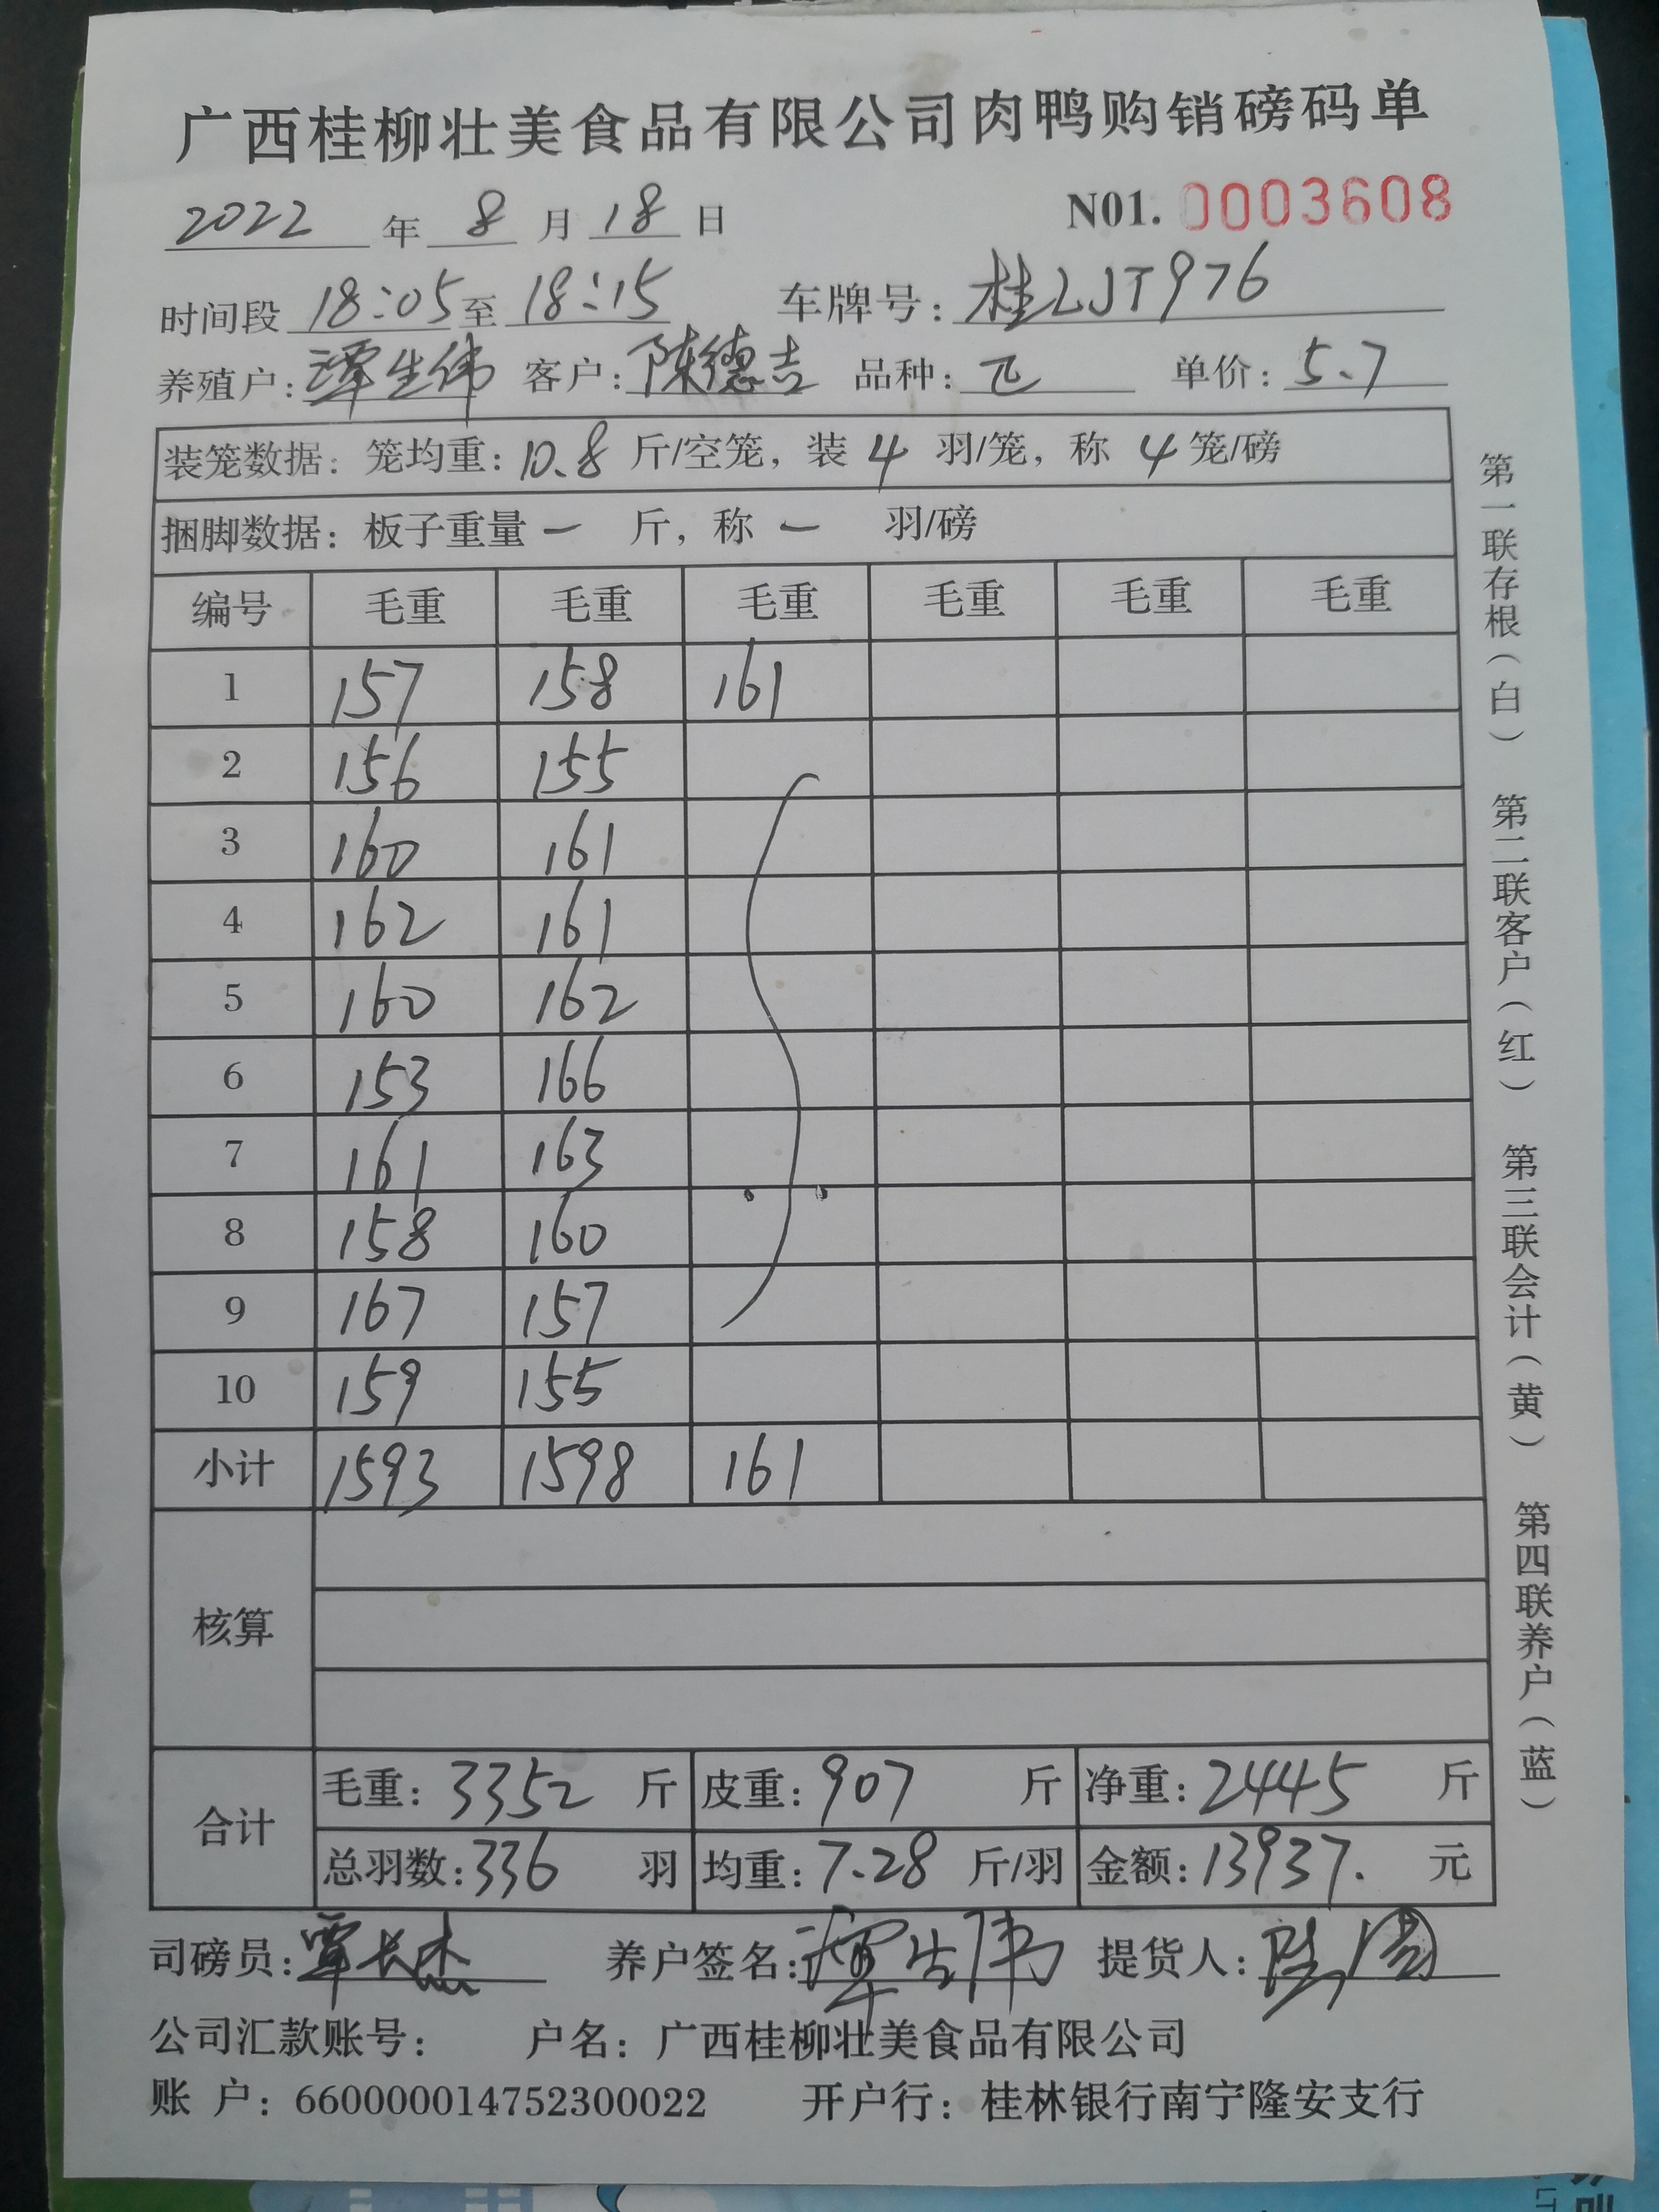 广西桂柳壮美食品有限公司肉鸭购销磅码单
2022 年 8 月 18 日 N01. 0003608
时间段 18:05 至 18:15 车牌号: 桂LJT976
养殖户: 潭生伟 客户: 陈德吉 品种: 单价: 5.7
装笼数据: 笼均重: 10.8 斤/空笼, 装 4 羽/笼, 称 4 笼/磅
捆脚数据: 板子重量 一 斤, 称 一 羽/磅
编号 毛重 毛重 毛重 毛重 毛重 毛重
1 157 158 161
2 156 155
3 160 161
4 162 161
5 160 162
6 153 166
7 161 163
8 158 160
9 167 157
10 159 155
小计 1593 1598 161
核算
合计 毛重: 3352 斤 皮重: 907 斤 净重: 2445 斤
总羽数: 336 羽 均重: 7.28 斤/羽 金额: 13937. 元
司磅员: 覃长杰 养户签名: 潭生伟 提货人:
公司汇款账号: 户名: 广西桂柳壮美食品有限公司
账 户: 660000014752300022 开户行: 桂林银行南宁隆安支行
第一联存根(白) 第二联客户(红) 第三联会计(黄) 第四联养户(蓝)